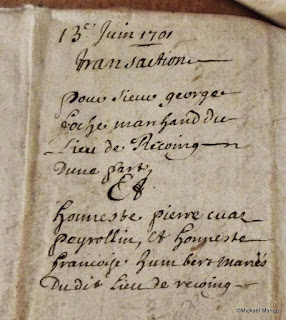 13e Juin 1701
transaction
pour sieur george
roche marchand du
Lieu de Recoing
dune part
Et
honneste pierre cuaz
peyrollin, et honneste
francoise humbert mariés
Du dit Lieu de recoing
©Mickaël Mangot